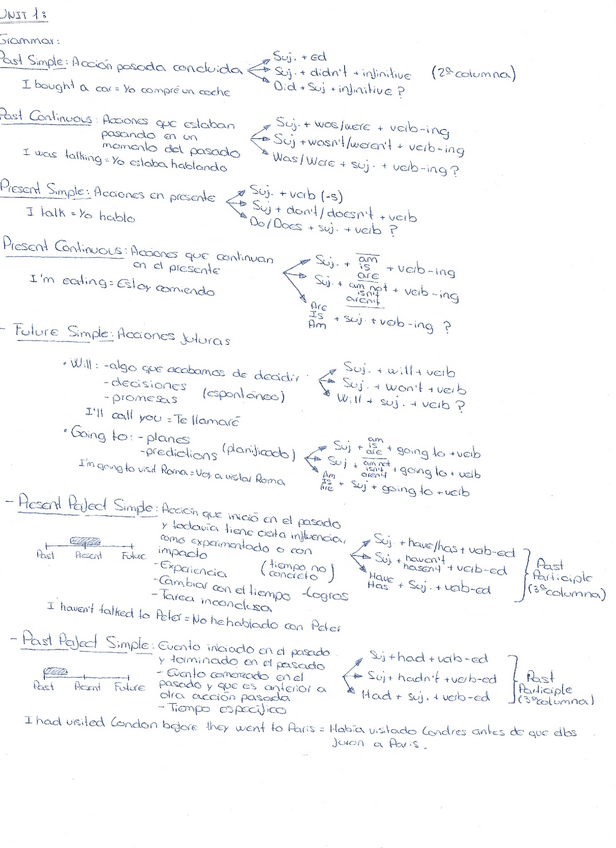 UNIT 1:
Grammar:
Past Simple: Acción pasada concluida
Suj. + ed
Suj. + didn't + infinitive (2ª columna)
Did + Suj + infinitive?
I bought a car = Yo compré un coche
Past Continuous: Acciones que estaban
pasando en un
momento del pasado
Suj. + was/were + verb-ing
Suj + wasn't/weren't + verb-ing
Was/Were + suj. + verb-ing?
I was talking = Yo estaba hablando
Present Simple: Acciones en presente
Suj. + verb (-s)
Suj + don't/doesn't + verb
Do/Does + suj. + verb?
I talk = Yo hablo
Present Continuous: Acciones que continuan
en el presente
Suj. + am is are + verb-ing
Suj. + am not isn't aren't + verb-ing
Are Is Am + suj. + verb-ing?
I'm eating = Estoy comiendo
- Future Simple: Acciones futuras
• Will: - algo que acabamos de decidir
- decisiones (espontáneo)
- promesas
Suj. + will + verb
Suj. + won't + verb
Will + suj. + verb?
I'll call you = Te llamaré
• Going to: - planes
- predictions (planificado)
Suj + am is are + going to + verb
Suj + am not isn't aren't + going to + verb
Am Is Are + Suj + going to + verb
I'm going to visit Roma = Voy a visitar Roma
- Present Perfect Simple: Acción que inició en el pasado
y todavía tiene cierta influencia,
como experimentado o con
impacto
- Experiencia (tiempo no concreto)
- Cambiar con el tiempo - Logros
- Tarea inconclusa
Past Present Future
Suj. + have/has + verb-ed
Suj + haven't hasn't + verb-ed
Have Has + Suj. + verb-ed
Past
Participle
(3ª columna)
I haven't talked to Peter = No he hablado con Peter
- Past Perfect Simple: Evento iniciado en el pasado
y terminado en el pasado
- Evento comenzado en el
pasado y que es anterior a
otra acción pasada
- Tiempo específico
Past Present Future
Suj + had + verb-ed
Suj + hadn't + verb-ed
Had + suj. + verb-ed
Past
Participle
(3ª columna)
I had visited London before they went to Paris = Había visitado Londres antes de que ellos
fueran a París.